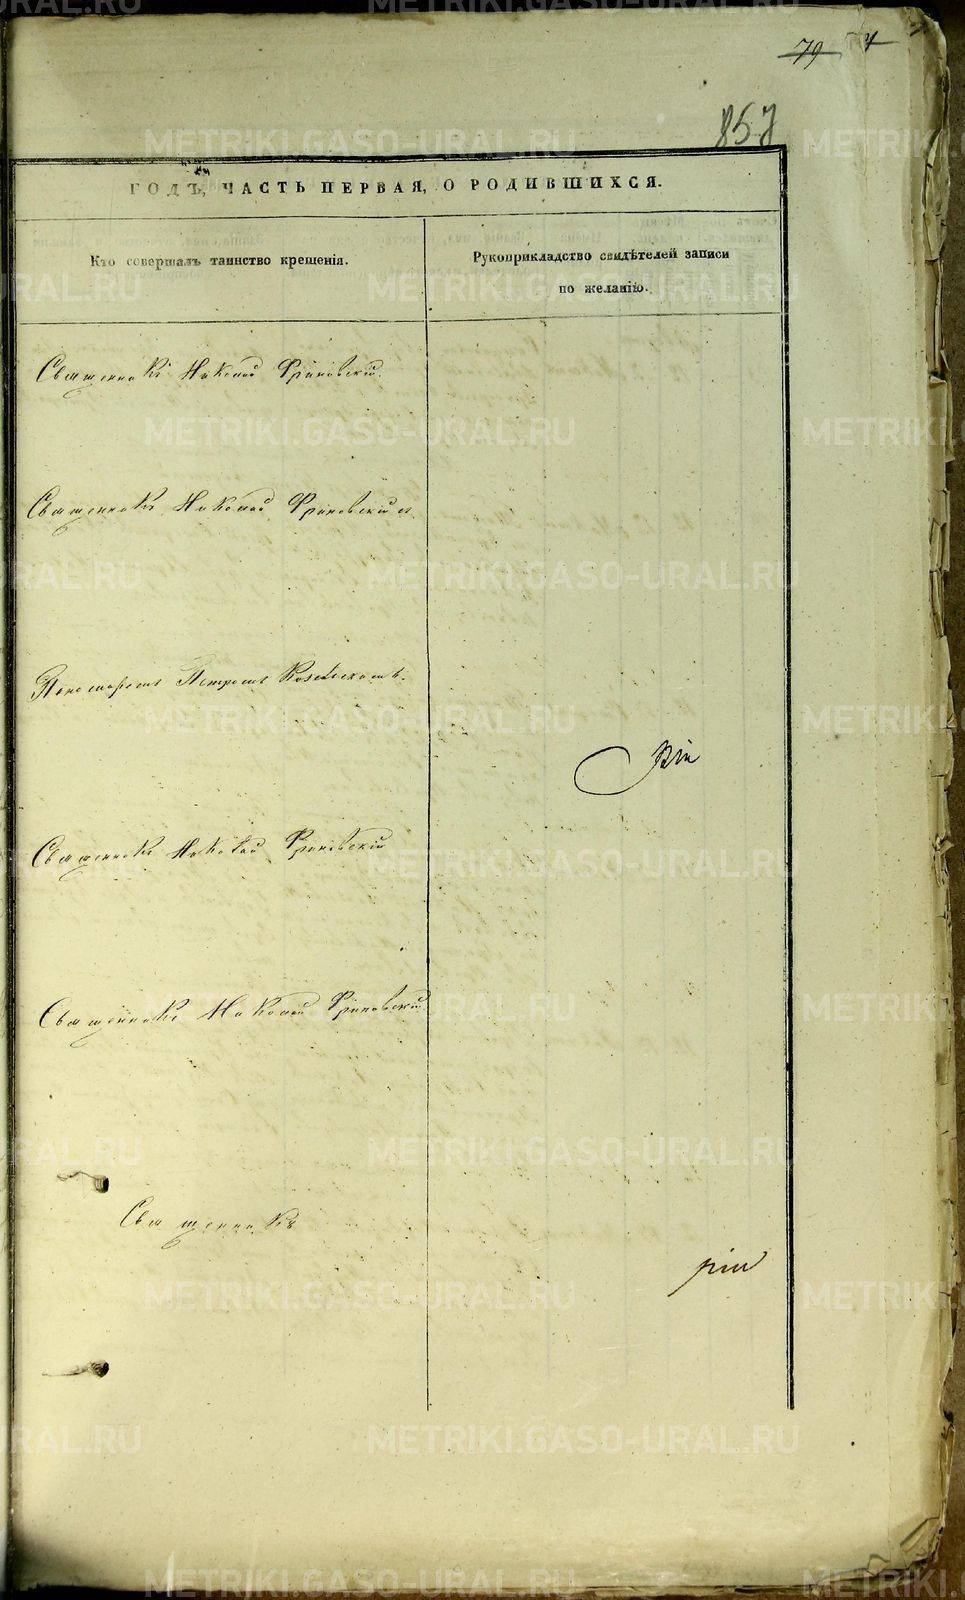 79
857
ГОДЪ, ЧАСТЬ ПЕРВАЯ, О РОДИВШИХСЯ.
Кто совершалъ таинство крещенія.
Рукоприкладство свидѣтелей записи
по желанію.
Священникъ Николай Фриновскій.
Священникъ Николай Фриновскій
Пономаремъ Петромъ
Священникъ Николай Фриновскій
Священникъ Николай Фриновскій
Священникъ
METRIKI.GASO-URAL.RU